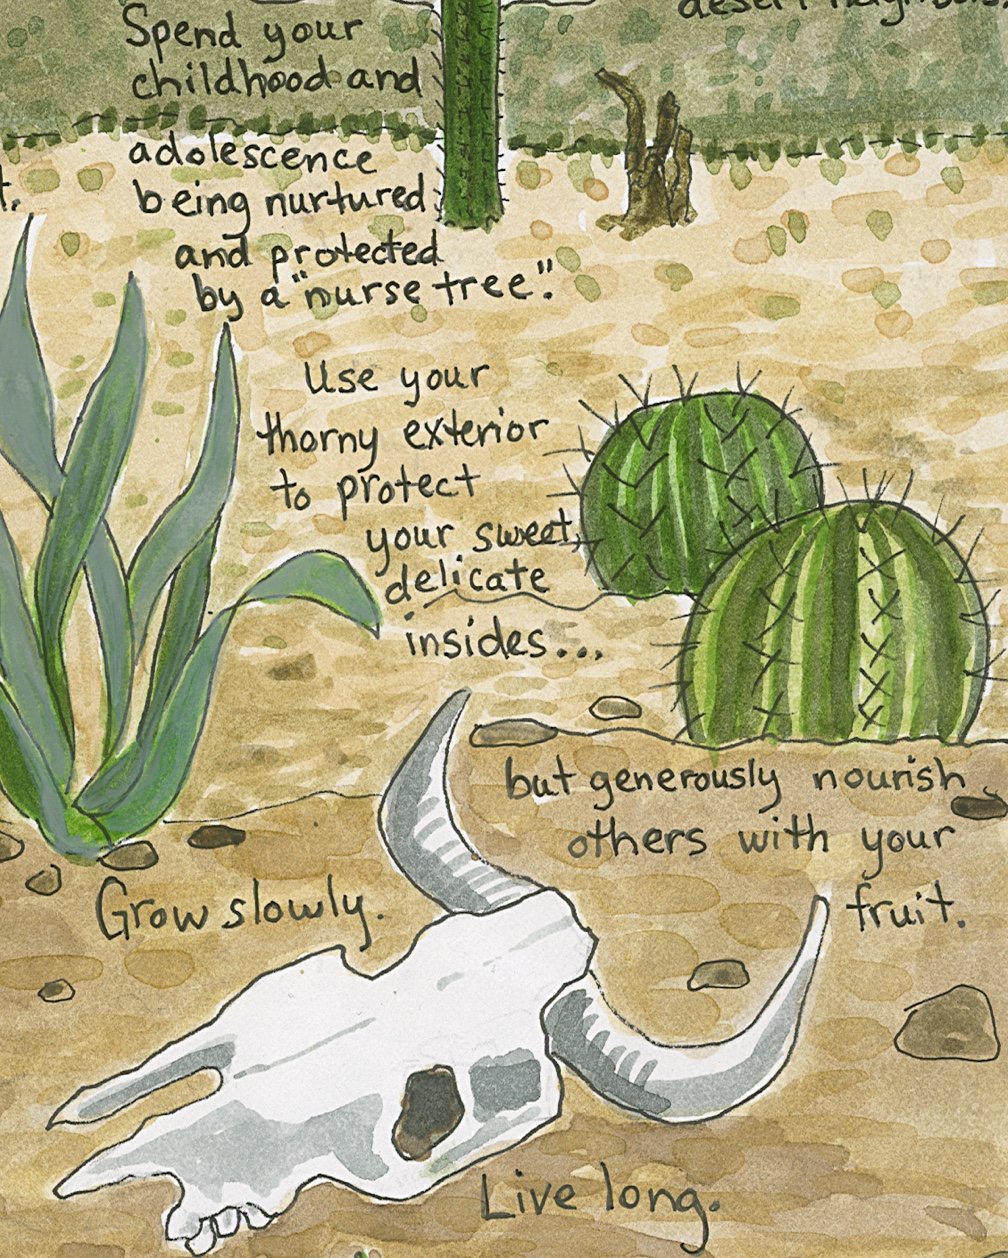 Spend your
childhood and
adolescence
being nurtured
and protected
by a "nurse tree".
Use your
thorny exterior
to protect
your sweet,
delicate
insides...
but generously nourish
others with your
fruit.
Grow slowly.
Live long.